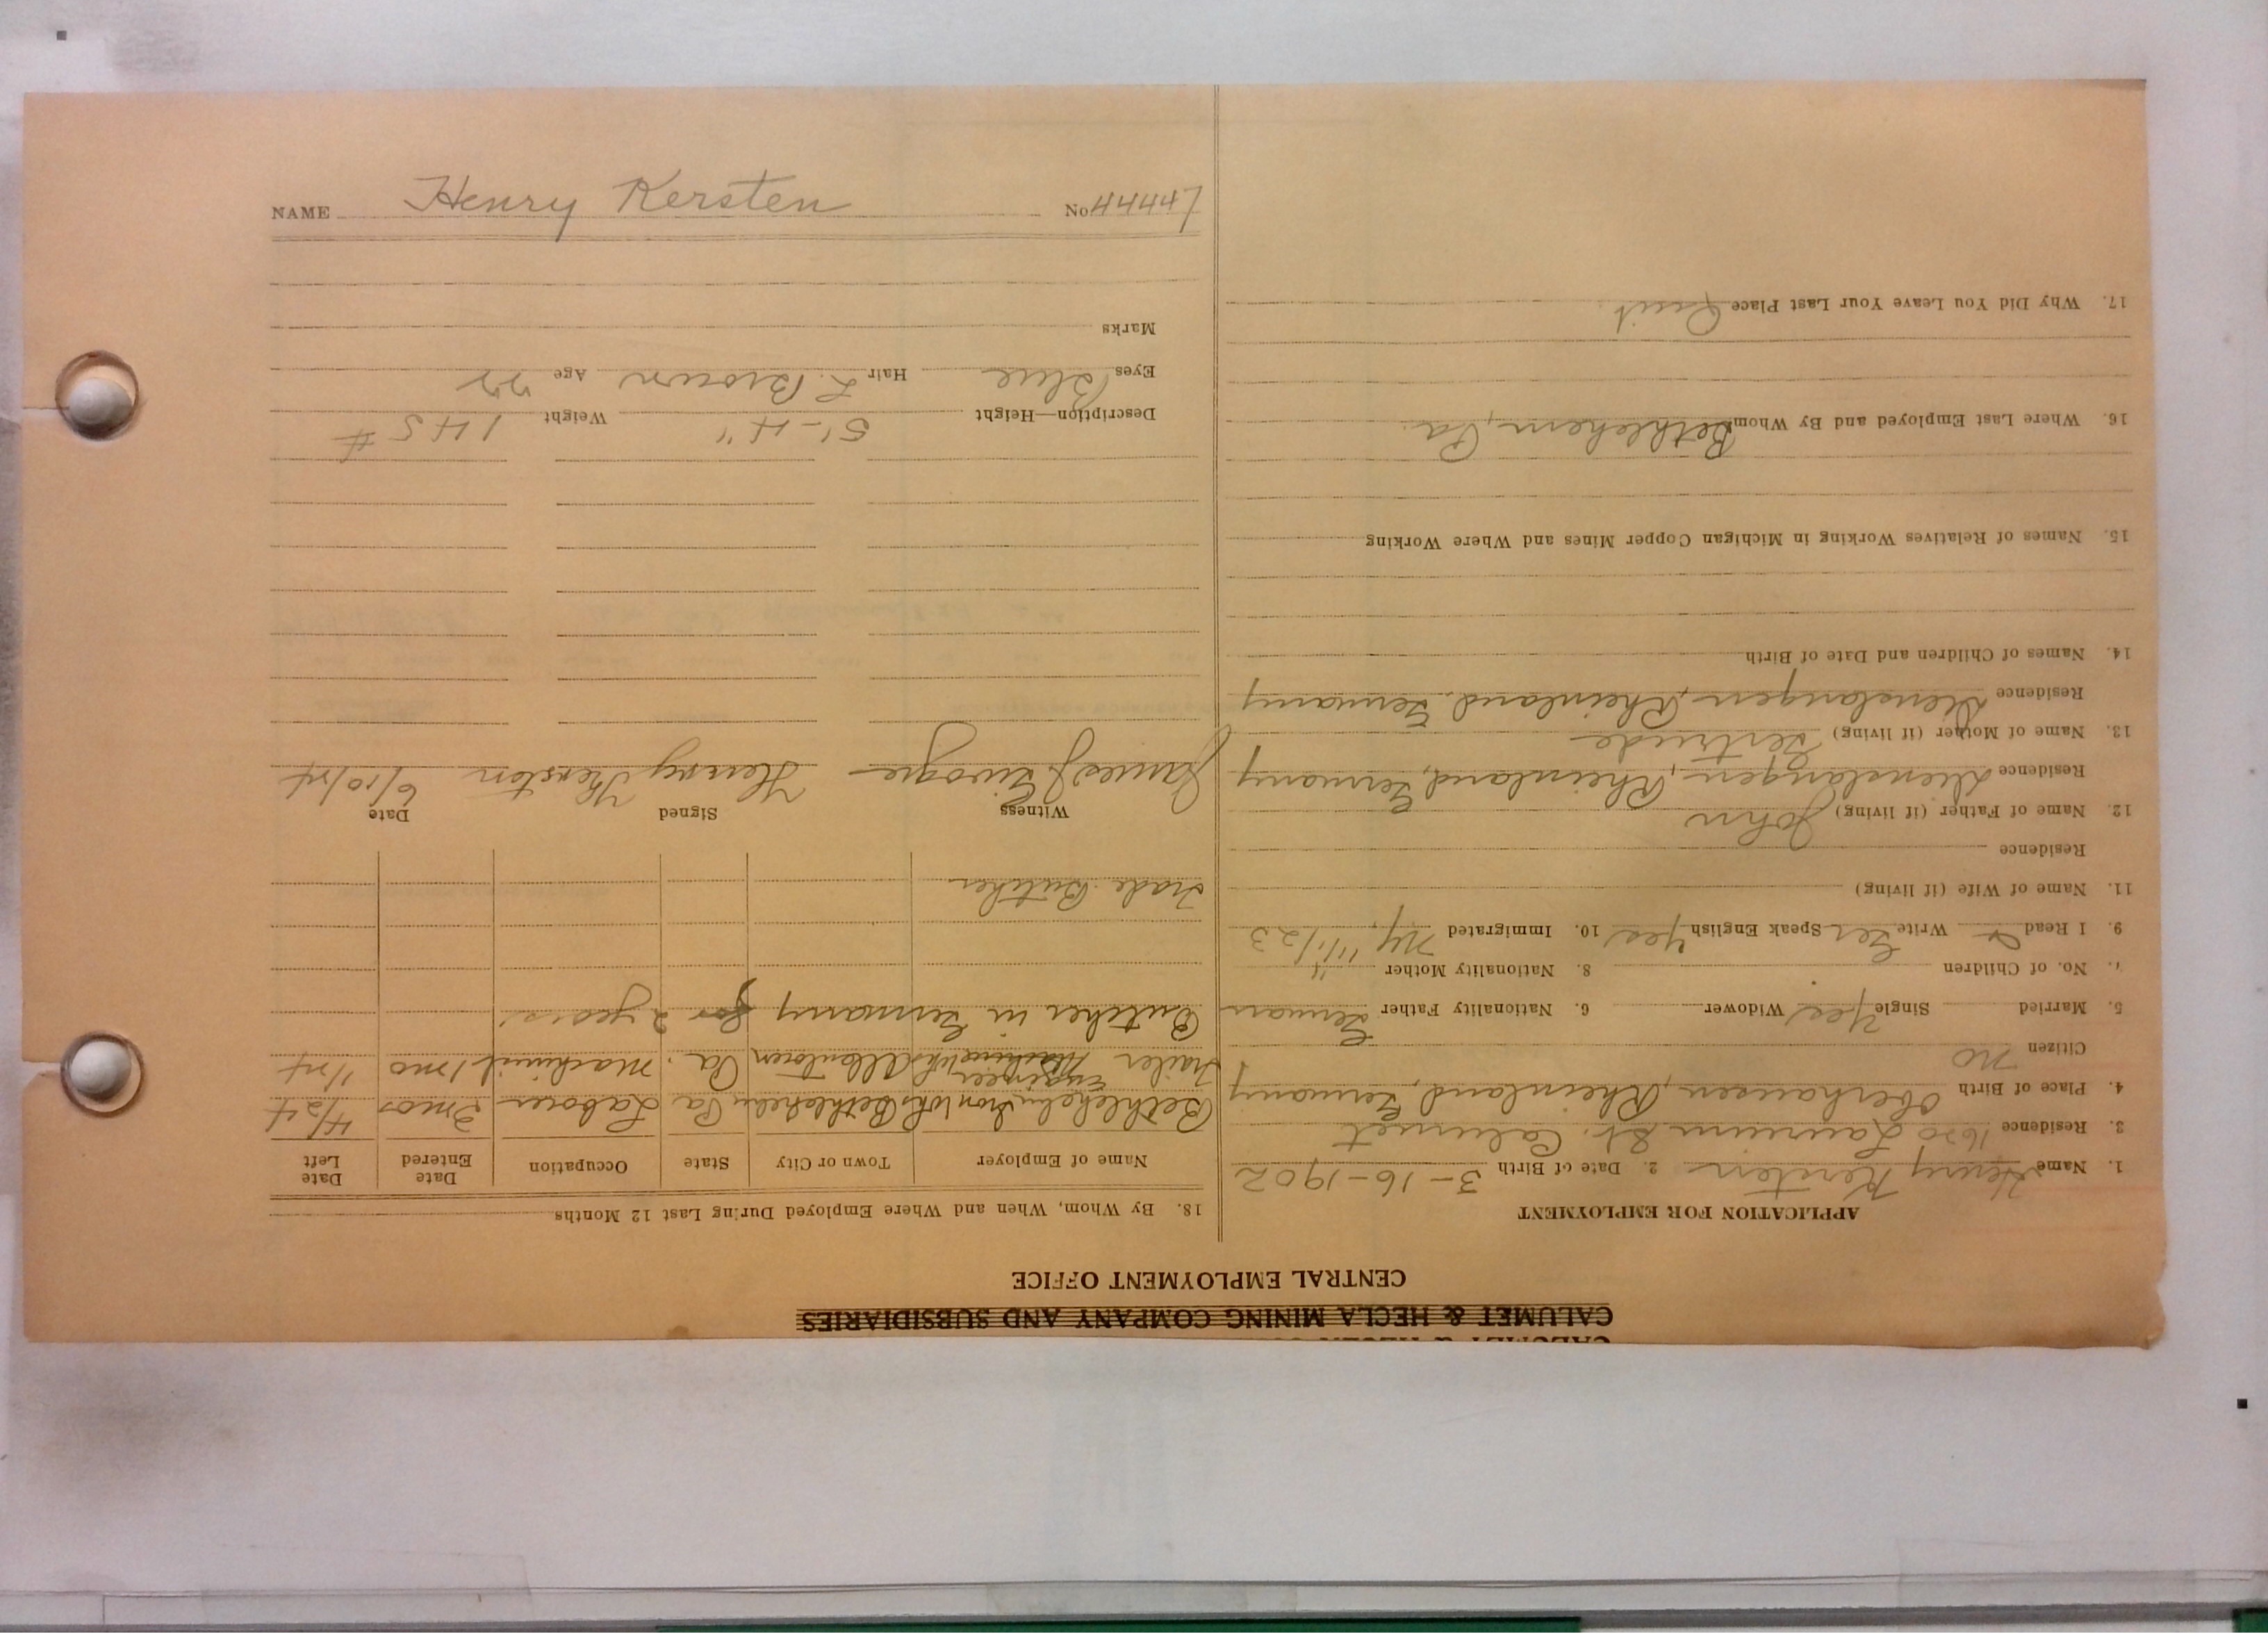 CALUMET & HECLA MINING COMPANY AND SUBSIDIARIES
CENTRAL EMPLOYMENT OFFICE
APPLICATION FOR EMPLOYMENT
1. Name Henry Kersten 2. Date of Birth 3-16-1902
3. Residence 1630 Laurium St. Calumet
4. Place of Birth Oberhausen, Rheinland, Germany
Citizen no
5. Married Single Yes Widower 6. Nationality Father German
7. No. of Children 8. Nationality Mother "
9. I Read & Write Ger Speak English Yes 10. Immigrated NY 11/1/23
11. Name of Wife (if living)
Residence
12. Name of Father (if living) John
Residence Rheinland, Germany
13. Name of Mother (if living) Gertrude
Residence Rheinland, Germany
14. Names of Children and Date of Birth
15. Names of Relatives Working in Michigan Copper Mines and Where Working
16. Where Last Employed and By Whom Bethlehem, Pa.
17. Why Did You Leave Your Last Place Quit
18. By Whom, When and Where Employed During Last 12 Months
Name of Employer Town or City State Occupation Date Entered Date Left
Bethlehem Iron Wks Bethlehem Pa Laborer 3mos 4/24
Engineer
Trailer Wks Allentown Pa. Machinist 1mo 1/24
Butcher in Germany for 2 years.
Trade Butcher
Witness Signed Date
James J. Henry Kersten 6/10/24
Description—Height 5'-4" Weight 145 #
Eyes Blue Hair L. Brown Age 22
Marks
NAME Henry Kersten No 44447